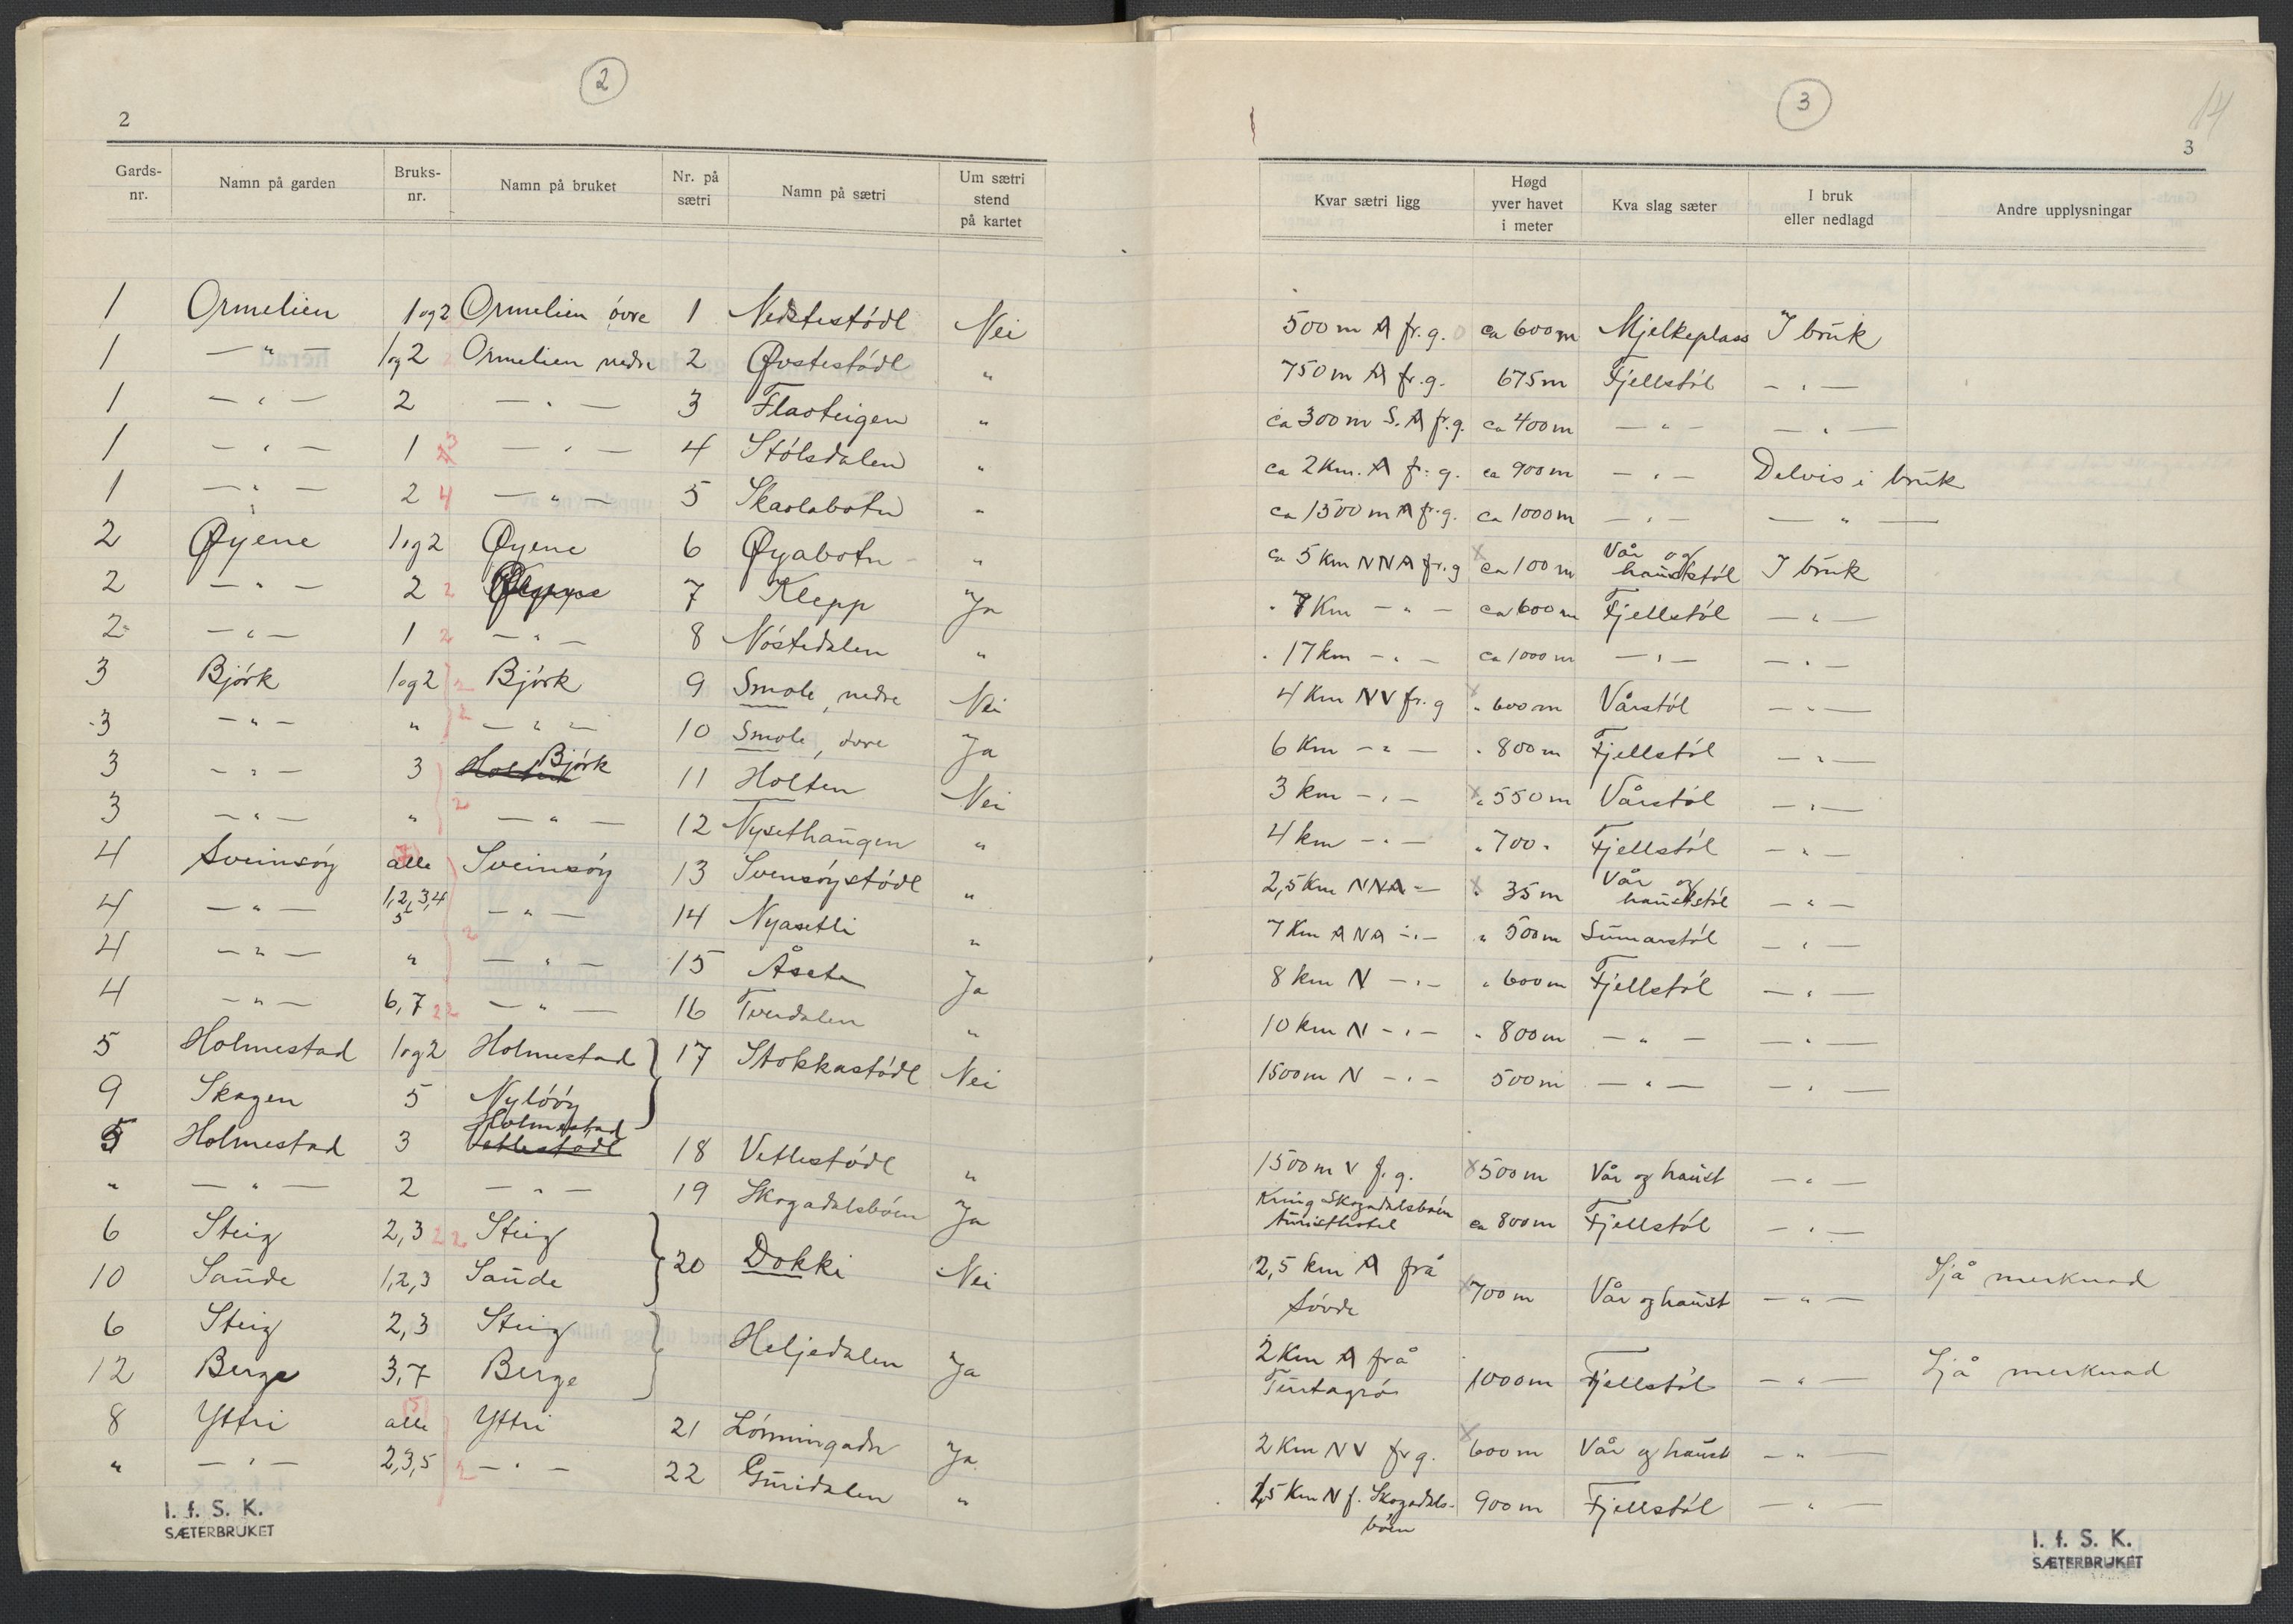 2
2
Gards-nr. Namn på garden Bruks-nr. Namn på bruket Nr. på sætri Namn på sætri Um sætri stend på kartet
1 Ormelien 1 og 2 Ormelien övre 1 Nedstestödl Nei
1 — " — 1 og 2 Ormelien nedre 2 Øvstestödl "
1 — " — 2 — " — 3 Flaoteigen "
1 — " — 1 3 — " — 4 Stölsdalen "
1 — " — 2 4 — " — 5 Skaolabotn "
2 Øyene 1 og 2 Øyene 6 Øyabotn "
2 — " — 2 2 7 Klepp Ja
2 — " — 1 2 — " — 8 Nöstedalen "
3 Björk 1 og 2 2 Björk 9 Smole, nedre Nei
3 — " — " 2 — " — 10 Smole, övre Ja
3 — " — 3 Björk 11 Holten Nei
3 — " — " 2 — " — 12 Nysethaugen "
4 Sveinsöy alle Sveinsöy 13 Svensöystödl "
4 — " — 1,2,3,4 5 — " — 14 Nyasetli "
4 — " — " 2 — " — 15 Åsete Ja
4 — " — 6,7 22 — " — 16 Tverdalen "
5 Holmestad 1 og 2 Holmestad 17 Stokkastödl Nei
9 Skagen 5 Nylööy
5 Holmestad 3 Holmestad Vetlestödl 18 Vetlestödl "
" — " — 2 — " — 19 Skogadalsböen Ja
6 Steig 2,3 22 Steig 20 Dokki Nei
10 Saude 1,2,3 Saude
6 Steig 2,3 Steig Heljedalen Ja
12 Berge 3,7 Berge
8 Yttri alle (5) Yttri 21 Lönningadn Ja
" — " — 2,3,5 2 — " — 22 Guridalen "
I. f. S. K.
SÆTERBRUKET
3
14
3
Kvar sætri ligg Høgd yver havet i meter Kva slag sæter I bruk eller nedlagd Andre upplysningar
500 m A fr. g. ca 600 m Mjelkeplass I bruk
750 m A fr. g. 675 m Fjellstöl — " —
ca 300 m S. A fr. g. ca 400 m — " — — " —
ca 2 Km. A fr. g. ca 900 m — " — Delvis i bruk
ca 1500 m A fr. g. ca 1000 m — " — — " —
ca 5 Km NNA fr. g x ca 100 m Vår og hauststöl I bruk
" 7 Km — " — ca 600 m Fjellstöl — " —
" 17 km — " — ca 1000 m — " — — " —
4 Km NV fr. g x " 600 m Vårstöl — " —
6 Km — " — " 800 m Fjellstöl — " —
3 km — " — x " 550 m Vårstöl — " —
4 km — " — " 700 " Fjellstöl — " —
2,5 Km NNA — x " 35 m Vår og hauststöl — " —
7 Km ANA — " — " 500 m Sumarstöl — " —
8 km N — " — " 600 m Fjellstöl — " —
10 km N — " — " 800 m — " — — " —
1500 m N — " — 500 m — " — — " —
1500 m V f. g. x 500 m Vår og haust — " —
Kring Skogadalsböen turisthotel ca 800 m Fjellstöl — " —
2,5 km A frå Sövde x 700 m Vår og haust — " — Sjå merknad
2 Km A frå 1000 m Fjellstöl — " — Sjå merknad
2 Km NV fr g. x 600 m Vår og haust — " —
1,5 Km N f. Skogadalsböen 900 m Fjellstöl — " —
I. f. S. K.
SÆTERBRUKET